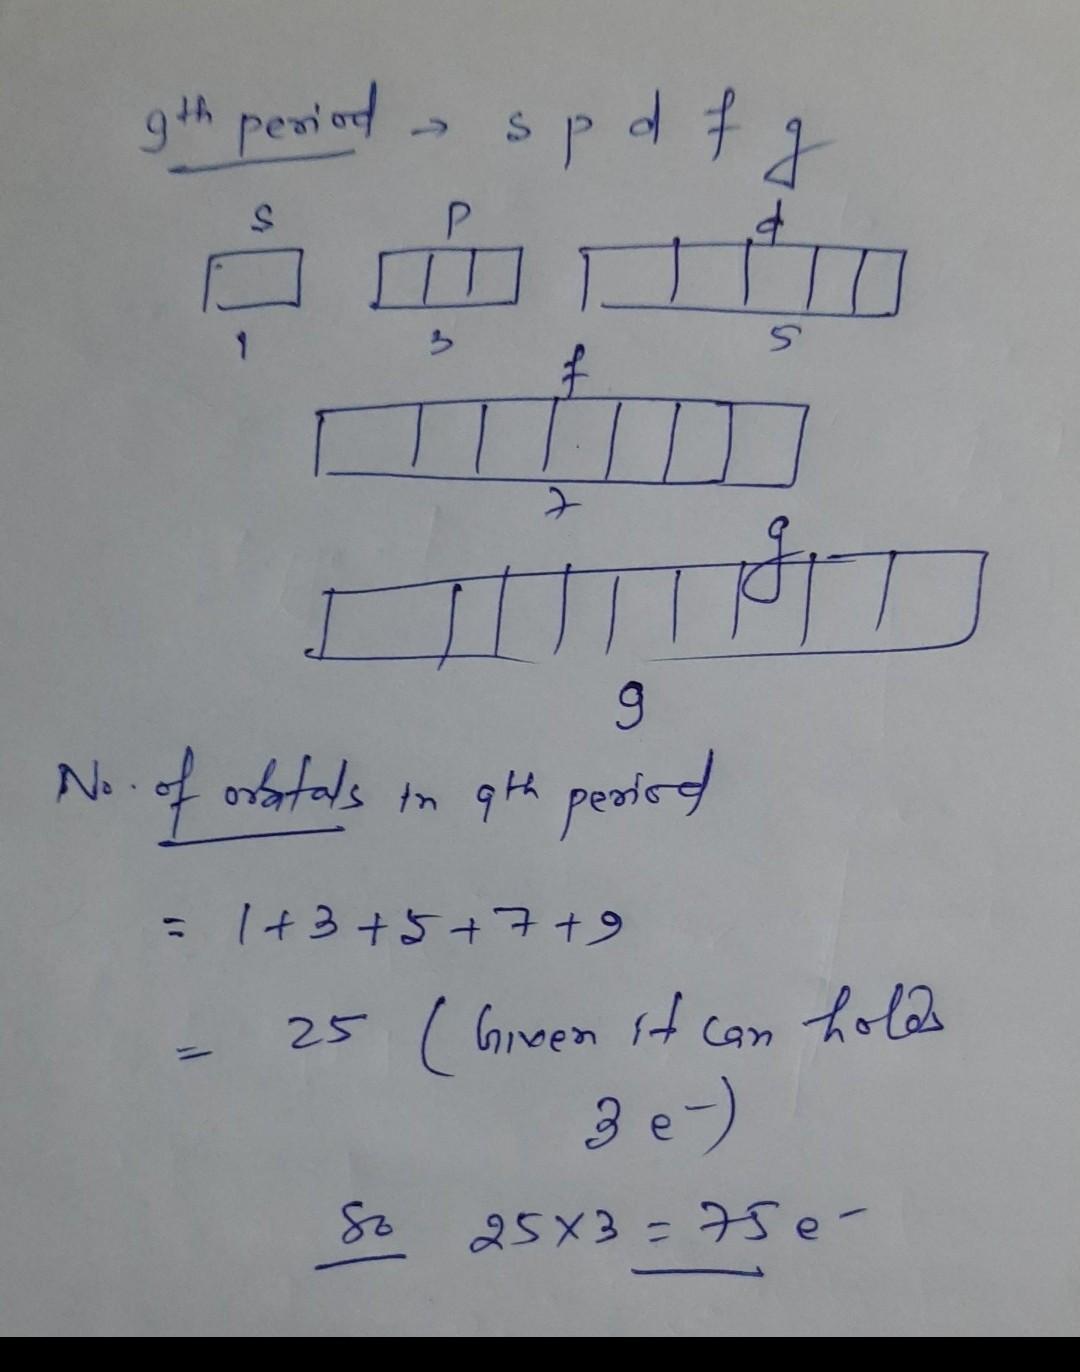 9th period → s p d f g
s p d
1 3 5
f
7
g
9
No. of orbitals in 9th period
= 1+3+5+7+9
= 25 ( Given it can holds
3 e-)
So 25×3 = 75 e-